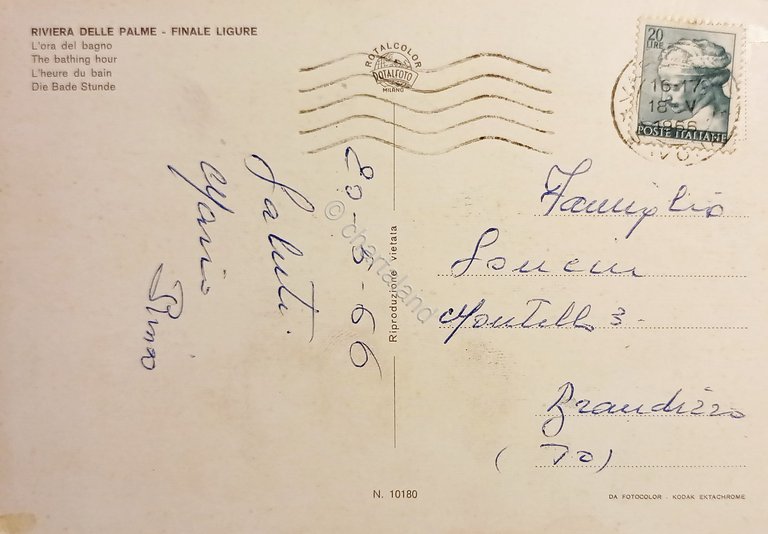 RIVIERA DELLE PALME - FINALE LIGURE
L'ora del bagno
The bathing hour
L'heure du bain
Die Bade Stunde
ROTALCOLOR
ROTALFOTO
MILANO
20
LIRE
16-17
18-V
1966
POSTE ITALIANE
20-5-66
Saluti
Mario
Riproduzione vietata
© chartaland
Famiglia
Montello 3
Brandizzo
(TO)
N. 10180
DA FOTOCOLOR - KODAK EKTACHROME